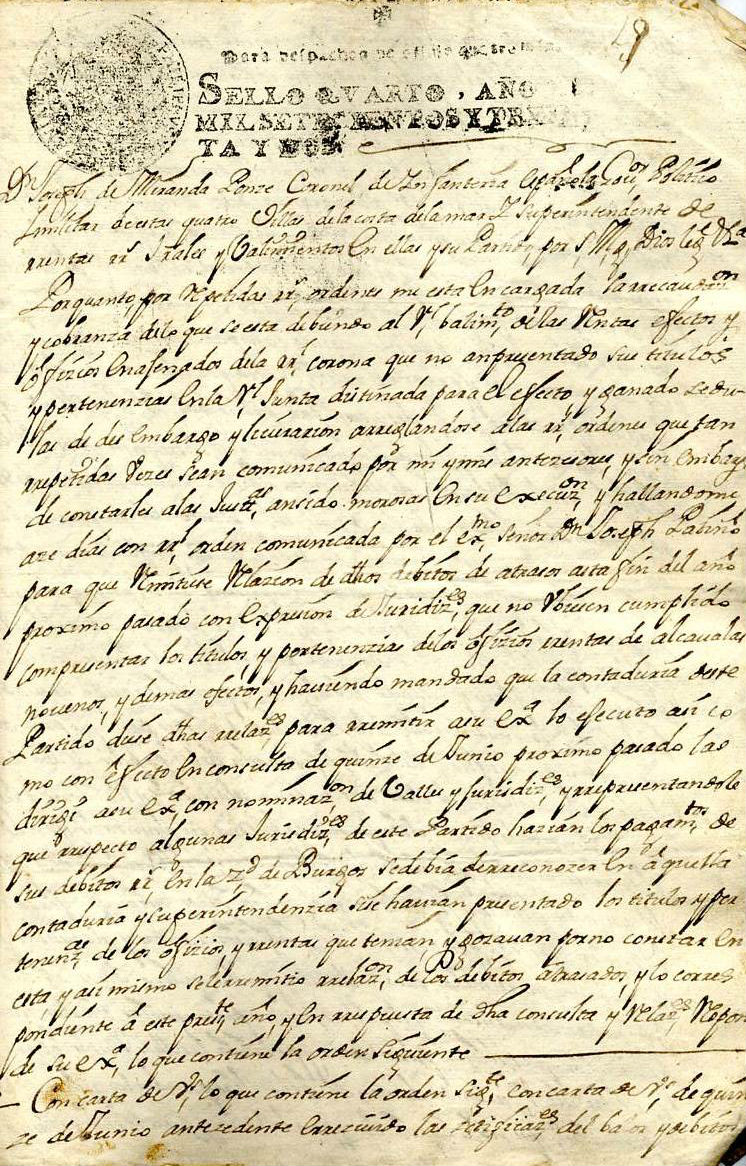 49
Para despachos de oficio quatro mrs.
SELLO QVARTO, AÑO
MIL SETECIENTOS Y TREIN-
TA Y DOS
Dn Joseph de Miranda Ponze Coronel de Infanteria española Gov.or Politico
Imilitar de estas quatro Villas de la costa de la mar I superintendente de
rrentas rr.s I rales y Valimientos En ellas y su Partido, por S. Mg. Dios le g.e &a
Por quanto, por Repetidas rr.s ordenes me esta Encargada la rrecaudaz.on
y cobranza de lo que se esta debiendo al R.l balim.to de las Rentas efectos y
ofizios Enajenados de la rr.l corona que no an presentado sus titulos
y pertenenzias En la R.l Junta destinada para el efecto y ganado zedu-
las de des embargo y liverazion arreglandose a las rr.s ordenes que tan
rrepetidas Vezes sean comunicado por mi y mis antezesores, y sin embargo
de constarles a las Just.as, an sido morosas En su execuz.on, y hallandome
aze dias con rr.l orden comunicada por el ex.mo señor Dn Joseph Patiño
para que Remitiese Relazion de dhos debitos de atrasos asta fin del año
proximo pasado con expresion de Juridiz.es, que no Vbiesen cumplido
compresentar los titulos, y pertenenzias de los ofizios rrentas de alcavalas
novenos, y demas efectos, y haviendo mandado que la contaduria deste
Partido diese dhas rrelaz.es para rremitir a su ex.a lo efecuto asi co
mo con efecto En consulta de quinze de Junio proximo pasado las
dirigi a su ex.a con nominaz.on, de Valles y Jurisdiz.es, y rrepresentandole
que rrespecto algunas Jurisdiz.es de este Partido hazian los pagam.tos de
sus debitos rr.s En la z.d de Burgos se debia de rreconozer En aquella
contaduria y superintendenzia si se havian presentado los titulos y per
tenenz.as de los ofizios y rrentas que tenian y gozavan por no constar En
esta y asi mismo se le rremitio rrelaz.on, de los debitos atrasados, y lo corres
pondiente a este pres.te año, y En rrespuesta de dha consulta y Relaz.es Repon
de su ex.a, lo que contiene la orden siguiente
Con carta de V.s lo que contiene la orden sig.te, con carta de V.s de quin
ze de Junio antezedente Errecivido las zertificaz.es del balor y debitos